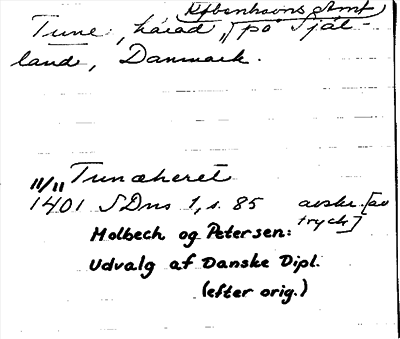 Københavns Amt
Tune, härad, på Själ-
land, Danmark.
11/11 Tunæheret
1401 SDns 1, s. 85 avskr. [av
tryck]
Molbech og Petersen:
Udvalg af Danske Dipl.
(efter orig.)